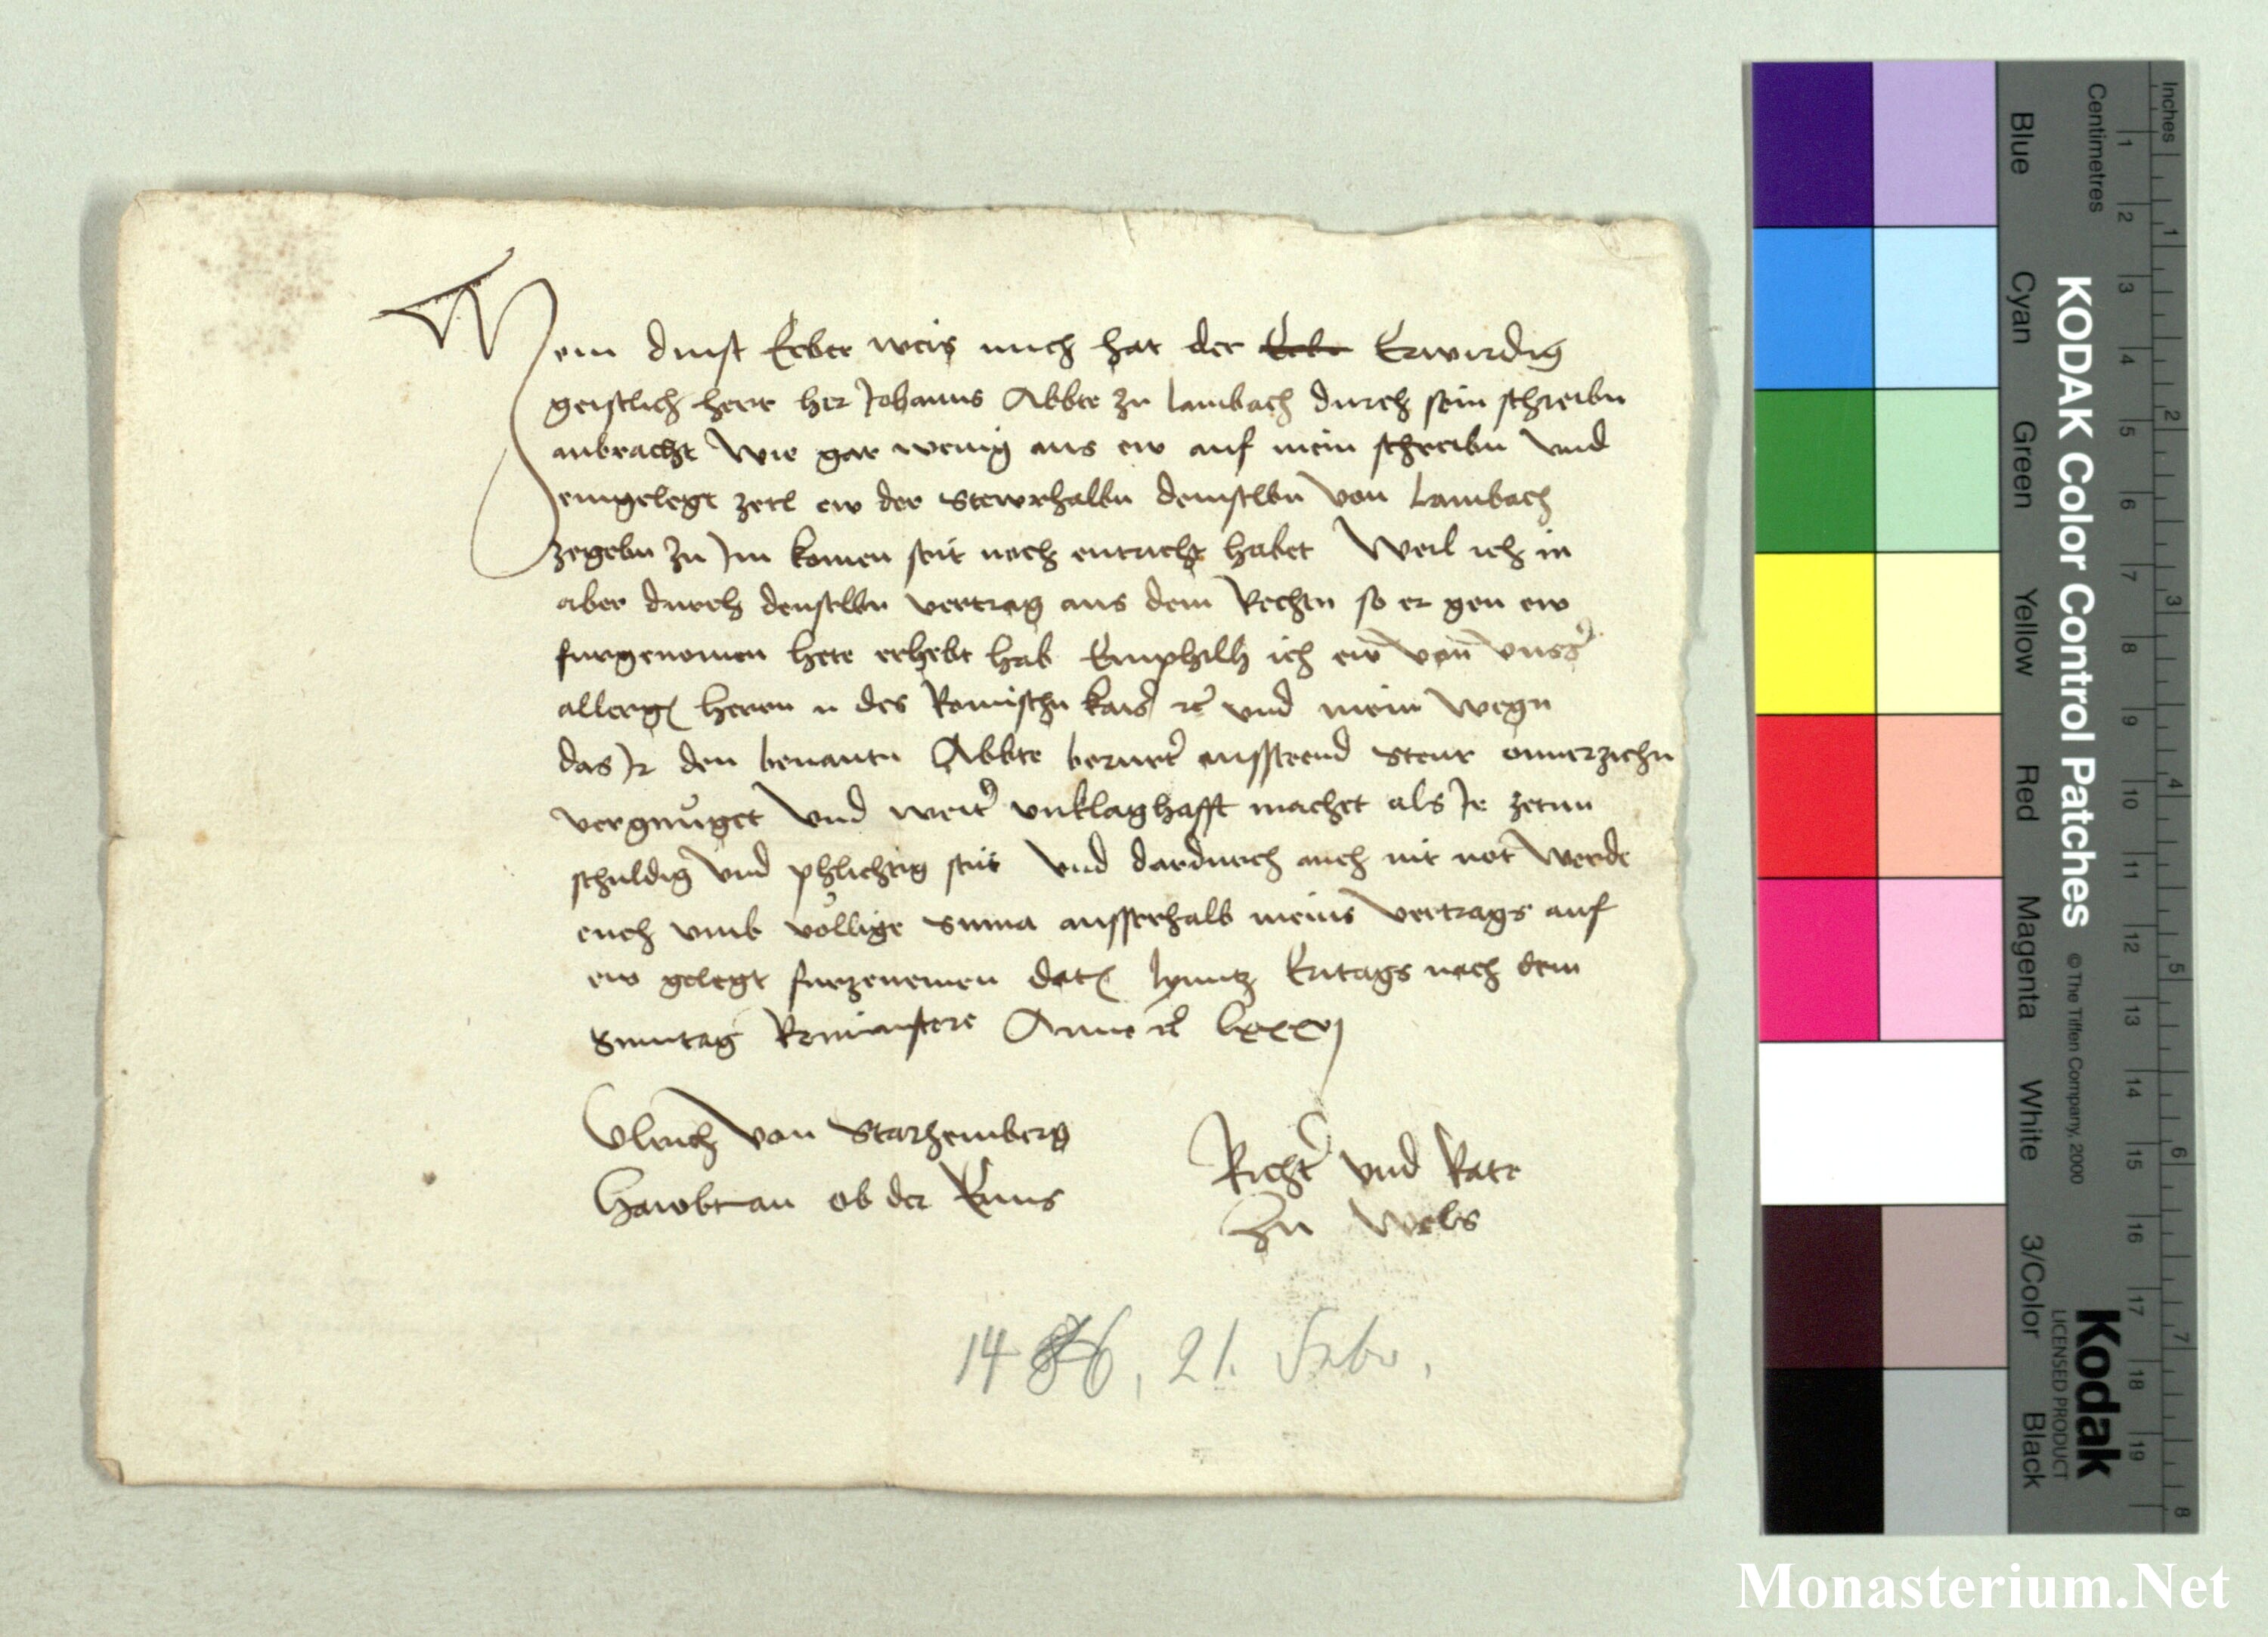 Mein dinst Erber weis mich hat der Erbr Erwirdig
geistlich herr her Johanns Abbte zu lambach durch sein schreibn
anbracht Wie gar wenig aus ew auf mein schreibn Vnd
eingelegt zetl ew der Stewrhalbn demselbn Von Lambach
zegebn zu Im komen seit noch entricht habet Weil ich in
aber durch denselbn vertrag aus dem Rechtn so er gen ew
furgenomen hete erhebt hab Emphilh ich ew von vnsers
allergn herrn n des Romischn kaisers etc vnd mein Wegn
das Ir den benantn Abbte berurt ausstend Steur onuerziehn
vergnuget Vnd weiter vnklaghafft machet als Ir zetun
schuldig Vnd phlichtig seit Vnd dardurch auch nit not Werde
euch vmb vollige Suma ausserhalb meins Vertrags auf
ew gelegt furzenemen dat lynntz Eritags nach dem
Sunntag Reminiscere Anno etc lxxxvj
Vlrich Von Starhemberg
Hawbtman ob der Enns
Richter Vnd Rate
Zu Wels
1486, 21. Febr.
Inches
Centimetres
1 2 3 4 5 6 7 8
1 2 3 4 5 6 7 8 9 10 11 12 13 14 15 16 17 18 19
KODAK Color Control Patches
© The Tiffen Company, 2000
Kodak
LICENSED PRODUCT
Blue
Cyan
Green
Yellow
Red
Magenta
White
3/Color
Black
Monasterium.Net